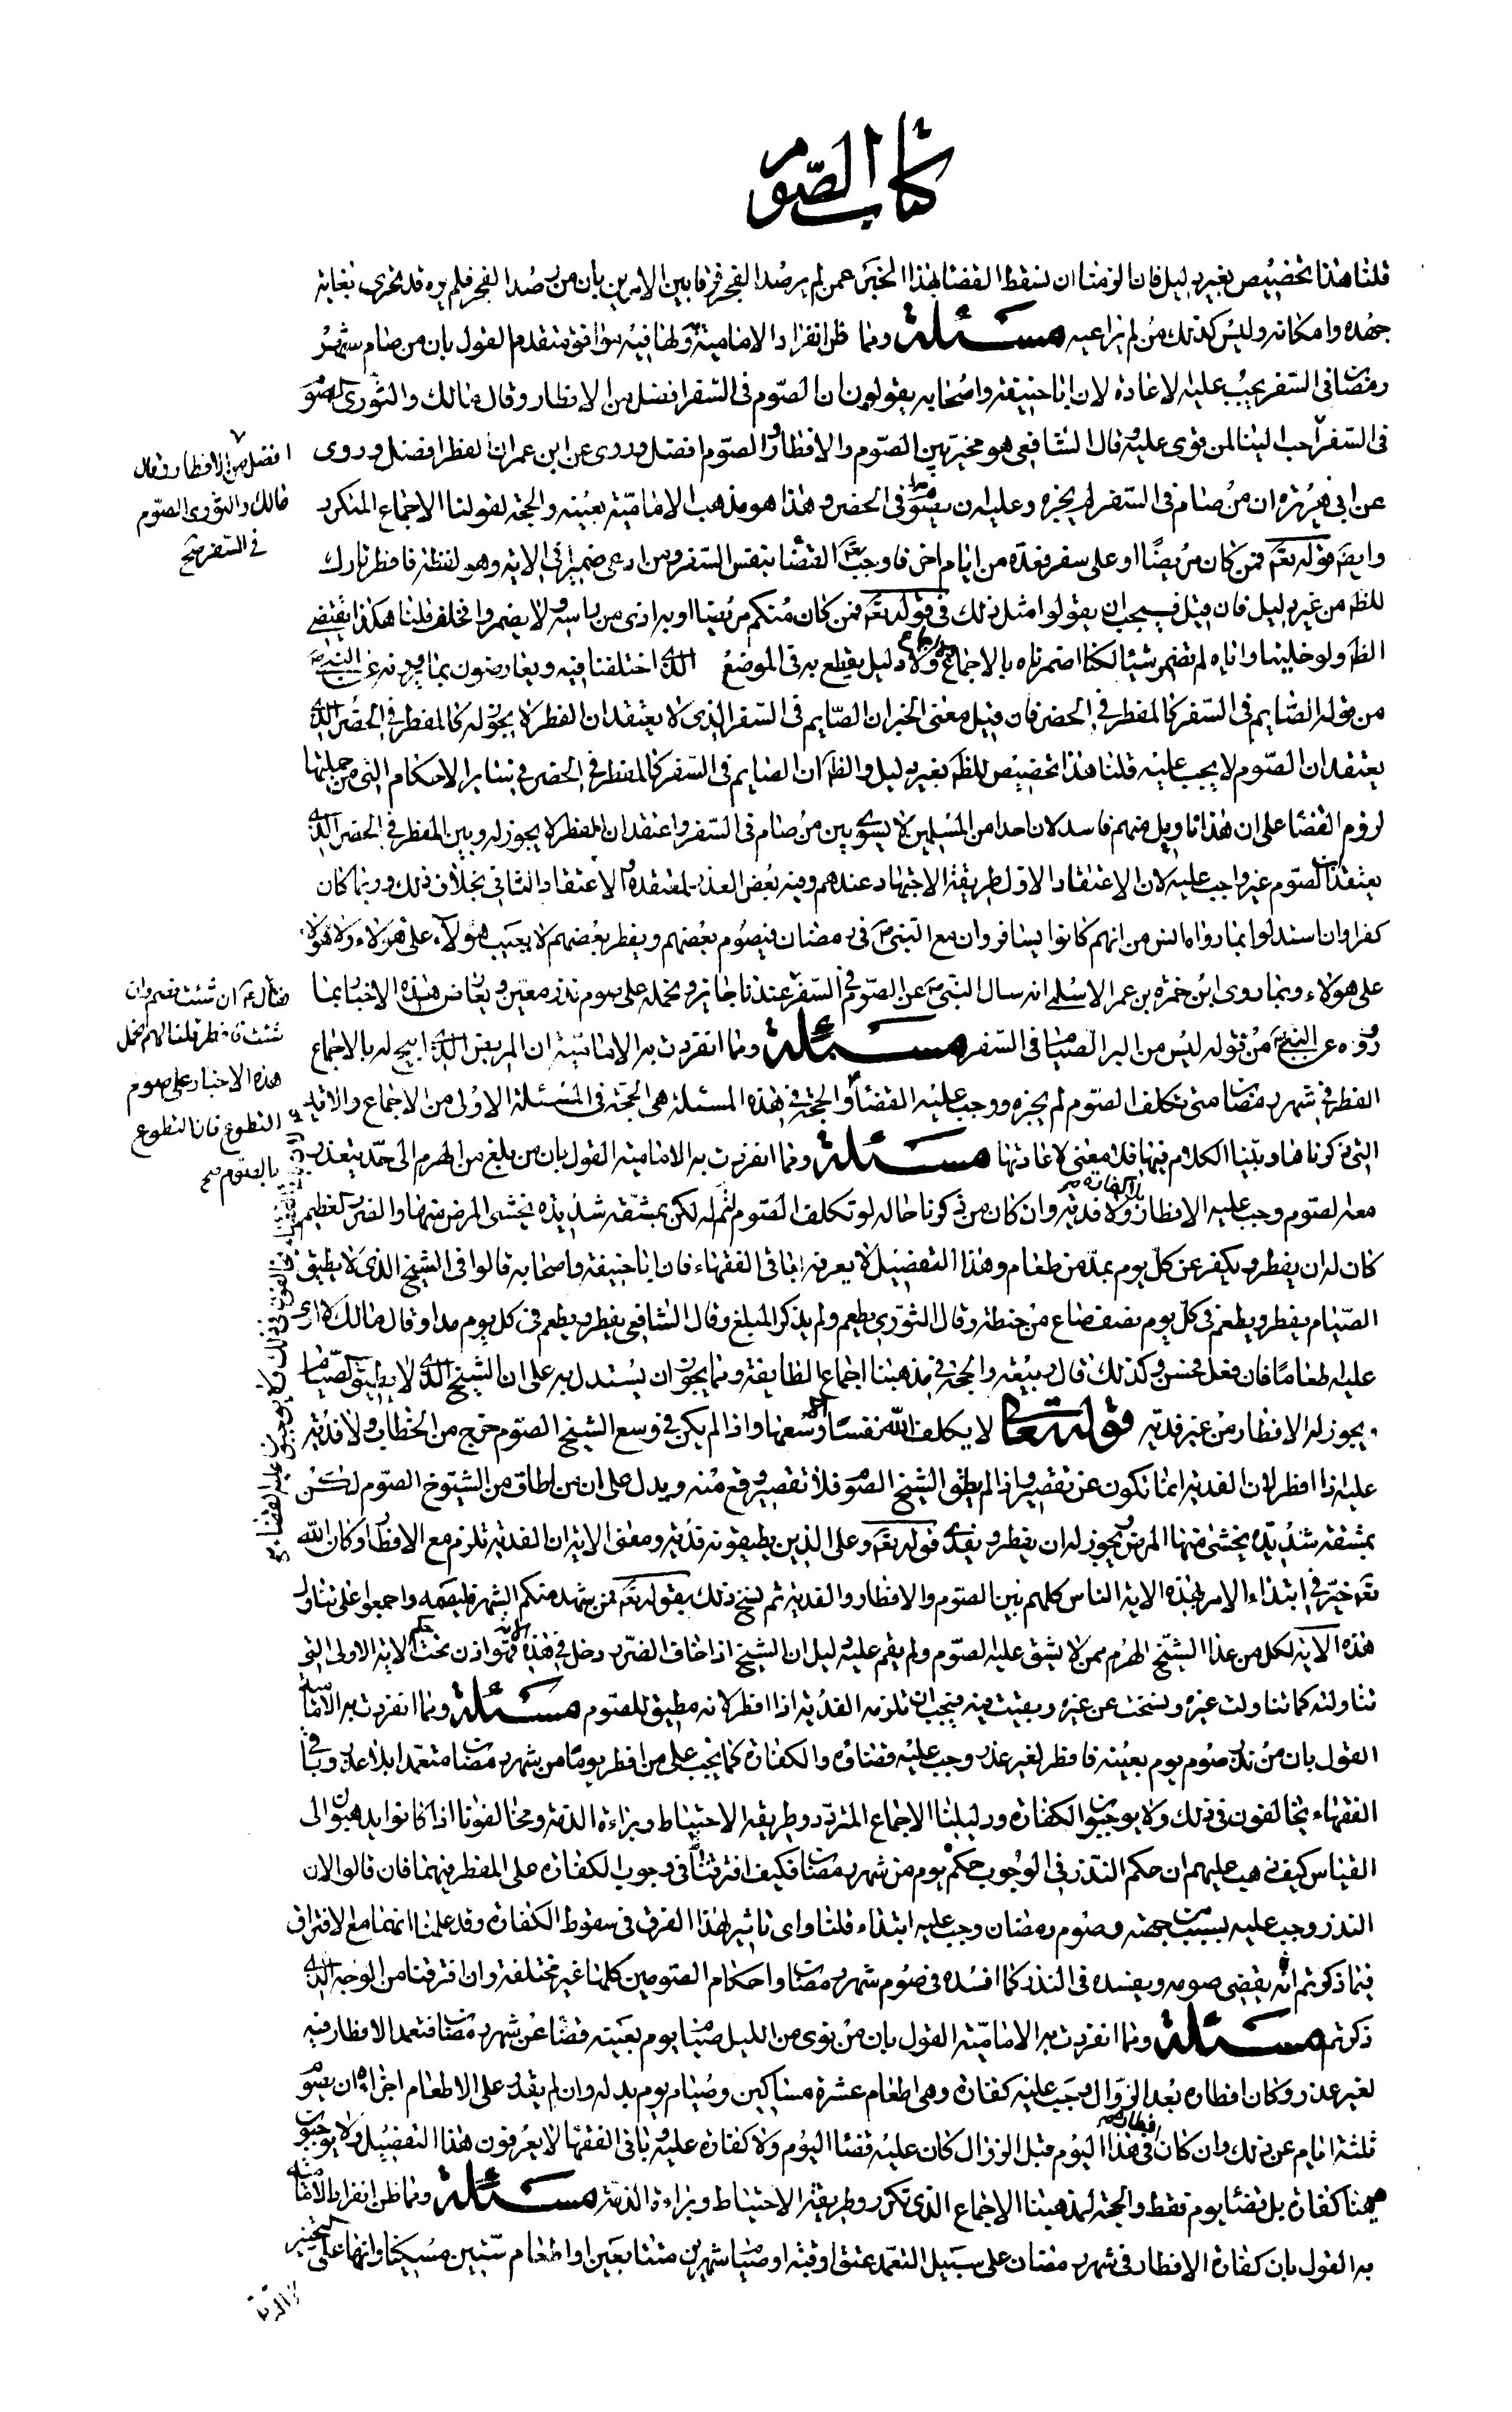 كتاب الصوم
قلنا هذا تخصيص بغير دليل فان الزمنا ان نسقط القضا بهذا الخبر عمن لم يرصد الفجر فرقنا بين الامرين بان من رصد الفجر فلم يره قد تحرى بغاية
جهده وامكانه وليس كذلك من لم يراعيه مسئلة ومما ظن انفراد الامامية ولها فيه موافق متقدم القول بان من صام شهر
رمضان فى السفر يجب عليه الاعادة لان ابا حنيفة واصحابه يقولون ان الصوم فى السفر افضل من الافطار وقال مالك والثورى الصوم
فى السفر احب الينا لمن قوى عليه قال الشافعى هو مخير بين الصوم والافطار والصوم افضل وروى عن ابن عمر ان الفطر افضل وروى
عن ابى هريرة ان من صام فى السفر لم يجزه وعليه ان يصوم فى الحضر وهذا هو مذهب الامامية بعينه والحجة لقولنا الاجماع المتكرر
وايضا قوله تعالى فمن كان مريضا او على سفر فعدة من ايام اخر فاوجب تعالى القضا بنفس السفر ومن ادعى ضميرا فى الاية وهو لفظة فافطر تارك
للظم من غير دليل فان قيل فيجب ان يقولوا مثل ذلك فى قوله تعالى فمن كان منكم مريضا او به اذى من راسه ولا يضمروا فحلق قلنا هكذا يقتضى
الظم ولو خلينا واياه لم نضمر شيئا لكنا اضمرناه بالاجماع ولا دليل يقطع به فى الموضع الذى اختلفنا فيه ويعارضون بما يروونه عن النبى ص
من قوله الصايم فى السفر كالمفطر فى الحضر فان قيل معنى الخبر ان الصايم فى السفر الذى لا يعتقد ان الفطر لا يجوز له كالمفطر فى الحضر الذى
يعتقد ان الصوم لا يجب عليه قلنا هذا تخصيص للظم بغير دليل والظم ان الصايم فى السفر كالمفطر فى الحضر فى ساير الاحكام التى من جملتها
لزوم القضا على ان هذا تاويل منهم فاسد لان احدا من المسلمين لا يسوى بين من صام فى السفر واعتقد ان الفطر لا يجوز له وبين المفطر فى الحضر الذى
يعتقد ان الصوم غير واجب عليه لان الاعتقاد الاول طريقة الاجتهاد عندهم وفيه بعض العذر لمعتقده والاعتقاد الثانى بخلاف ذلك وربما كان
كفرا وان استدلوا بما رواه انس من انهم كانوا يسافرون مع النبى ص فى رمضان فيصوم بعضهم ويفطر بعضهم لا يعيب هولاء على هولاء ولا هولاء
على هولاء وبما روى ابن حمزه بن عمر الاسلمى انه سال النبى ص عن الصوم فى السفر عندنا جايز ونحمله على صوم نذر معين ويعارض هذه الاخبار بما
رووه عن النبى ص من قوله ليس من البر الصيام فى السفر مسئلة ومما انفردت به الامامية ان المريض الذى ابيح له بالاجماع
الفطر فى شهر رمضان متى تكلف الصوم لم يجزه ووجب عليه القضا والحجة فى هذه المسئلة هى الحجة فى المسئلة الاولى من الاجماع والاية
التى ذكرناها وبينا الكلام فيها فلا معنى لاعادتها مسئلة ومما انفردت به الامامية القول بان من بلغ من الهرم الى حد يتعذر
معه الصوم وجب عليه الافطار بلا كفارة ولا فدية وان كان من ذكرنا حاله لو تكلف الصوم لتم له لكن بمشقة شديدة يخشى المرض منها والضرر العظيم
كان له ان يفطر ويكفر عن كل يوم بمد من طعام وهذا التفصيل لا يعرفه باقى الفقهاء فان ابا حنيفة واصحابه قالوا فى الشيخ الذى لا يطيق
الصيام يفطر ويطعم فى كل يوم نصف صاع من حنطة وقال الثورى يطعم ولم يذكر المبلغ وقال الشافعى يفطر ويطعم فى كل يوم مدا وقال مالك لا ارى
عليه طعاما فان فعل فحسن وكذلك قال ربيعة والحجة فى مذهبنا اجماع الطايفة ومما يجوز ان يستدل به على ان الشيخ الذى لا يطيق الصيام
يجوز له الافطار من غير فدية قوله تعالى لا يكلف الله نفسا الا وسعها واذا لم يكن فى وسع الشيخ الصوم خرج من الخطاب ولا فدية
عليه اذا افطر لان الفدية انما تكون عن تقصير واذا لم يطق الشيخ الصوم فلا تقصير وقع منه ويدل على ان من اطاق من الشيوخ الصوم لكن
بمشقة شديدة يخشى منها المرض يجوز له ان يفطر ويفدى قوله تعالى وعلى الذين يطيقونه فدية ومعنى الاية ان الفدية تلزم مع الافطار وكان الله
تعالى خير فى ابتداء الامر بهذه الاية الناس كلهم بين الصوم والافطار والفدية ثم نسخ ذلك بقوله تعالى فمن شهد منكم الشهر فليصمه واجمعوا على تناول
هذه الاية لكل من عدا الشيخ الهرم ممن لا يشق عليه الصوم ولم يقم دليل ان الشيخ اذا خاف الضرر دخل فى هذه الاية فهو اذن تحت حكم الاية الاولى التى
تناولته كما تناولت غيره ونسخت عن غيره وبقيت فيه فيجب ان تلزمه الفدية اذا افطر لانه مطيق للصوم مسئلة ومما انفردت به الامامية
القول بان من نذر صوم يوم بعينه فافطر لغير عذر وجب عليه قضاؤه والكفارة كما يجب على من افطر يوما من شهر رمضان متعمدا بلا عذر وباقى
الفقهاء يخالفون فى ذلك ولا يوجبون الكفارة ودليلنا الاجماع المتردد وطريقة الاحتياط وبراءة الذمة ومخالفونا اذا كانوا يذهبون الى
القياس كيف ذهب عليهم ان حكم النذر فى الوجوب حكم يوم من شهر رمضان فكيف افترقا فى وجوب الكفارة على المفطر فيهما فان قالوا لان
النذر وجب عليه بسبب من جهته وصوم رمضان وجب عليه ابتداء قلنا واى تاثير لهذا الفرق فى سقوط الكفارة وقد علمنا انهما مع الافتراق
فيما ذكرتم انه يقضى صومه ويفسده فى النذر كما افسده فى صوم شهر رمضان واحكام الصومين كلها غير مختلفة وان افترقا من الوجه الذى
ذكرتم مسئلة ومما انفردت به الامامية القول بان من نوى من الليل صيام يوم بعينه قضا عن شهر رمضان فتعمد الافطار فيه
لغير عذر وكان افطاره بعد الزوال وجب عليه كفارة وهى اطعام عشرة مساكين وصيام يوم بدله وان لم يقدر على الاطعام اجزاه ان يصوم
ثلثة ايام عن ذلك وان كان افطاره فى هذا اليوم قبل الزوال كان عليه قضا اليوم ولا كفارة عليه وباقى الفقها لا يعرفون هذا التفصيل ولا يوجبون
هيهنا كفارة بل قضا يوم فقط والحجة لمذهبنا الاجماع الذى تكرر وطريقة الاحتياط وبراءة الذمة مسئلة ومما ظن انفراد الامامية
به القول بان كفارة الافطار فى شهر رمضان على سبيل التعمد عتق رقبة او صيام شهرين متتابعين او اطعام ستين مسكينا وانها على التخيير
افضل من الافطار وقال
مالك والثورى الصوم
فى السفر صح
فقال ع ان شئت فصم وان
شئت فافطر قلنا لهم نحمل
هذه الاخبار على صوم
التطوع فان التطوع
بالصوم صح
الفقهاء يخالفون فى ذلك ولا يوجبون عليه القضا صح